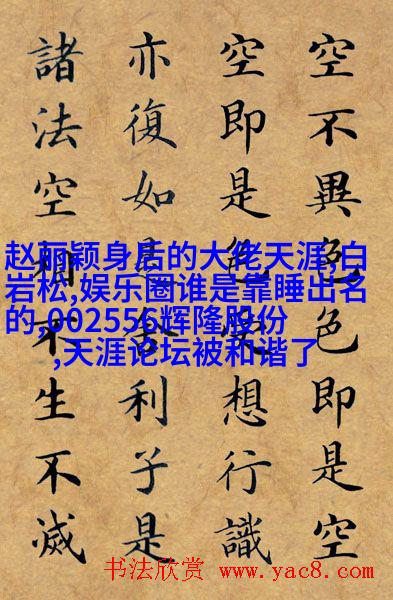 空不異色色即是空
空即是色受想行識
亦復如是舍利子是
諸法空相不生不滅
赵丽颖身后的大佬天涯,白
岩松,娱乐圈谁是靠睡出名
的,002556辉隆股份
,天涯论坛被和谐了
书法欣赏 www.yac8.com